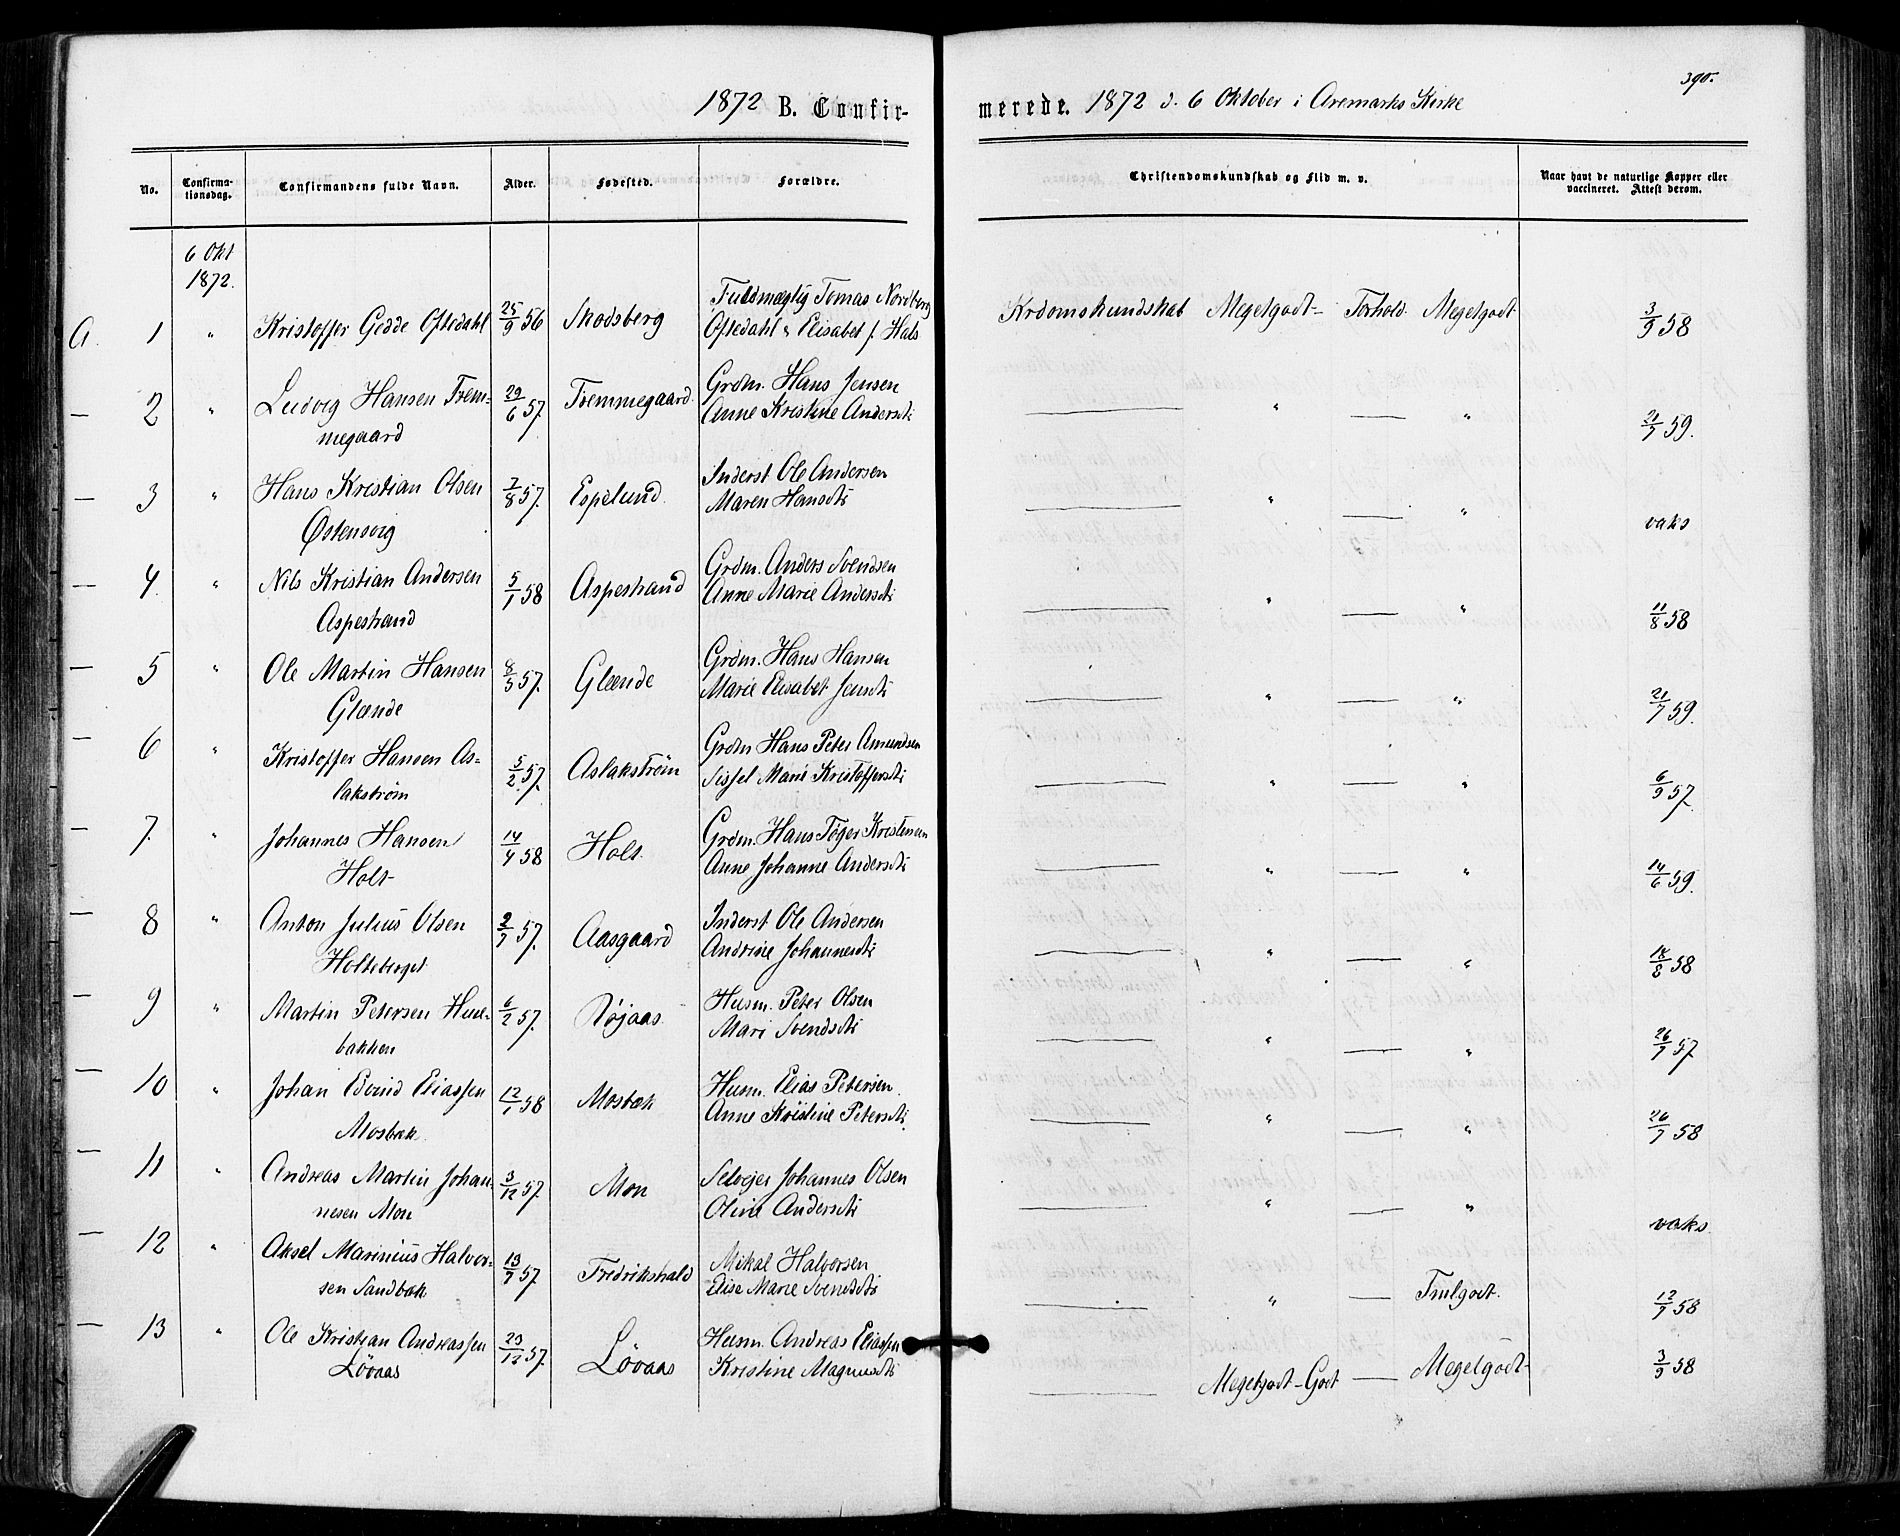 390.
1872 B. Confir-
merede. 1872 d. 6 Oktober i Aremarks Kirke
No.
Confirma-
tionsdag.
Confirmandens fulde Navn.
Alder.
Fødested.
Forældre.
Christendomskundskab og Flid m. v.
Naar havt de naturlige Kopper eller
vaccineret. Attest derom.
6 Okt
1872.
A. 1 " Kristoffer Gedde Oftedahl 25/9 56 Skodsberg Fuldmægtig Tomas Nordberg
Oftedahl & Elisabet f. Hals
Krdomskundskab Megetgodt - Forhold. Megetgodt 3/9 58
— 2 " Ludvig Hansen Trem-
megaard
29/6 57. Tremmegaard Grdm. Hans Jensen
Anne Kristine Andersdt
— " — " 21/7 59.
— 3 " Hans Kristian Olsen
Østensvig
7/8 57. Espelund Inderst Ole Andersen
Maren Hansdt
— " — " vaks
— 4. " Nils Kristian Andersen
Aspestrand
5/1 58 Aspestrand Grdm. Anders Svendsen
Anne Marie Andersdt
— " — " 11/8 58
— 5 " Ole Martin Hansen
Glænde
8/5 57. Glænde Grdm. Hans Hansen
Marie Elisabet Jensdt
— " — " 21/7 59.
— 6 " Kristoffer Hansen As-
lakstrøm
5/2 57. Aslakstrøm Grdm Hans Peter Amundsen
Sissel Marie Kristoffersdt
— " — " 6/9 57.
— 7. " Johannes Hansen
Holt
14/4 58 Holt Grdm. Hans Tøger Kristensen
Anne Johanne Andersdt
— " — " 14/6 59.
— 8 " Anton Julius Olsen
Holteberget
2/7 57. Aasgaard Inderst Ole Andersen
Andrine Johannesdt
— " — " 18/8 58
— 9 " Martin Petersen
bakken
6/2 57. Røjaas Husm. Peter Olsen
Mari Svendsdt
— " — " 26/7 57
— 10 " Johan Edvind Eliassen
Mosbæk
12/1 58 Mosbæk Husm. Elias Petersen
Anne Kristine Petersdt.
— " — " 26/7 58
— 11 " Andreas Martin Johan-
nesen Mon
3/12 57. Mon Selvejer Johannes Olsen
Oline Andersdt
— " — " vaks.
— 12 " Aksel Marinius Halvor-
sen Sandbæk
19/7 57. Fredrikshald Mikal Halvorsen
Elise Marie Svendsdt
— " — Temlgodt. 12/7 58
— 13 " Ole Kristian Andreassen
Løvaas
23/12 57. Løvaas Husm. Andreas Eliassen
Kristine Magnusdt
— Megetgodt - Godt — Megetgodt - 3/9 58